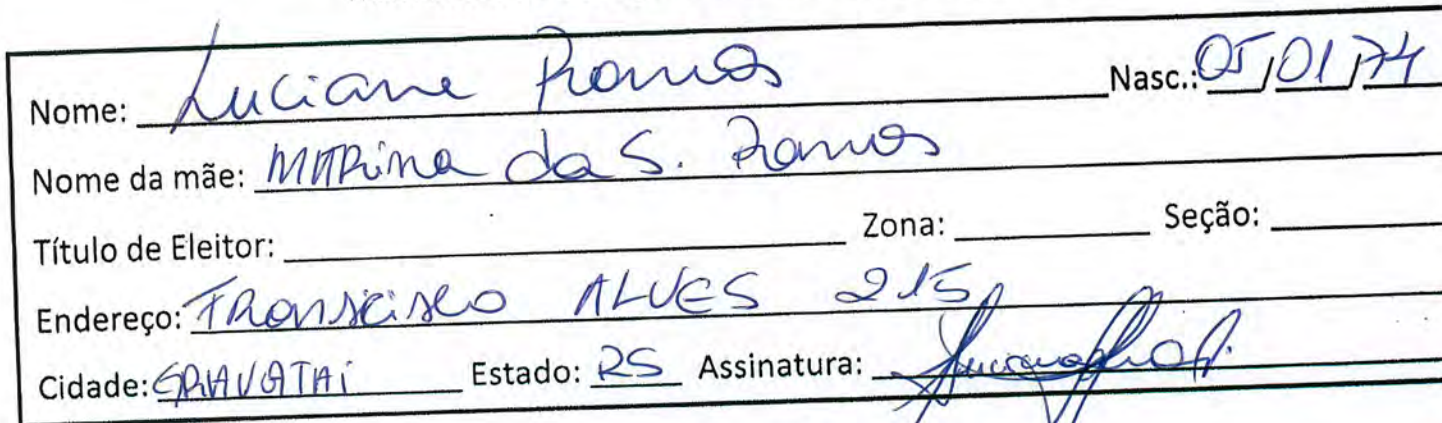 Nome: Luciane Ramos Nasc.: 05/01/74
Nome da mãe: Marina da S. Ramos
Título de Eleitor: Zona: Seção:
Endereço: Franscisco ALVES 215
Cidade: GRAVATAí Estado: RS Assinatura: